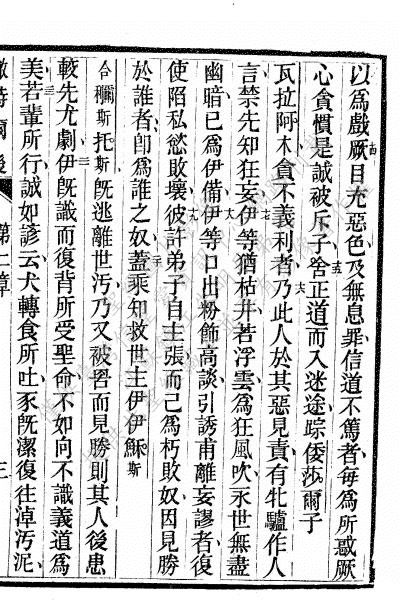 以為戲厥目充惡色及無息罪信道不篤者每為所惑厥
心貪慣是誠被斥子舍正道而入迷途踪倭莎爾子
瓦拉阿木貪不義利者乃此人於其惡見責有牝驢作人
言禁先知狂妄伊等猶枯井若浮雲為狂風吹永世無盡
幽暗已為伊備伊等口出粉飾高談引誘甫離妄謬者復
使陷私慾敗壞彼許弟子自主張而己為朽敗奴因見勝
於誰者卽為誰之奴蓋乘知救世主伊伊穌斯
合穪斯托斯旣逃離世汚乃又被罟而見勝則其人後患
較先尤劇伊旣識而復背所受聖命不如向不識義道為
美若輩所行誠如諺云犬轉食所吐豕旣潔復往淖汚泥
特爾後 第二章 三